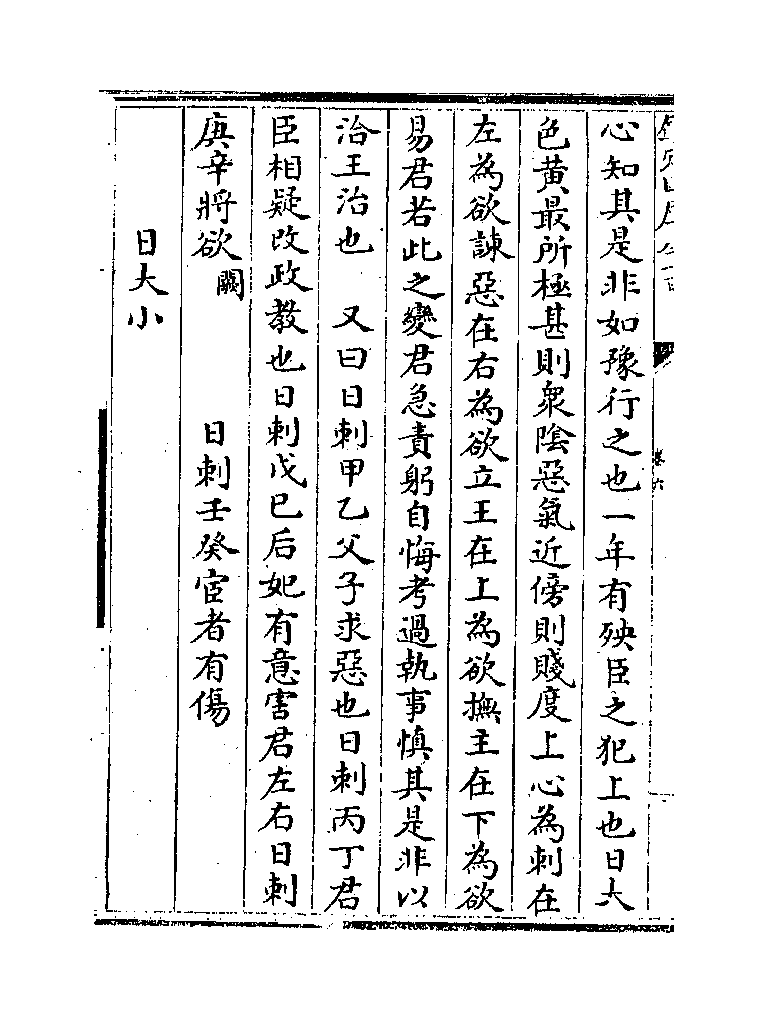 心知其是非如豫行之也一年有殃臣之犯上也日大
色黄最所極甚則衆陰惡氣近傍則賤度上心為刺在
左為欲諌惡在右為欲立王在上為欲撫主在下為欲
易君若此之變君急責躬自悔考過執事慎其是非以
治王治也 又曰日刺甲乙父子求惡也日刺丙丁君
臣相疑改政教也日刺戊巳后妃有意害君左右日刺
庚辛將欲闕 日刺壬癸宦者有傷
日大小
卷六